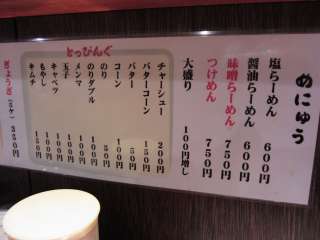 めにゅう
塩らーめん 600円
醤油らーめん 600円
味噌らーめん 750円
つけめん 750円
大盛り 100円増し
とっぴんぐ
チャーシュー 200円
バターコーン 150円
バター 50円
コーン 100円
のり 50円
のりダブル 100円
メンマ 100円
玉子 100円
キャベツ 100円
もやし 100円
キムチ 150円
ぎょうざ(5ケ) 350円